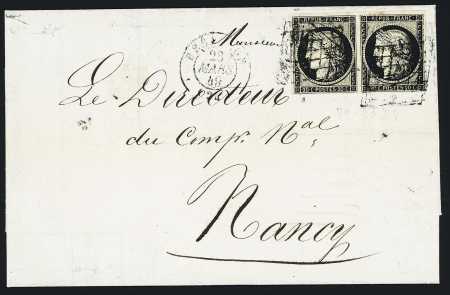 REPUB. FRANC. REPUB. FRANC.
20 C POSTES 20 C 20 C POSTES 20 C
Monsieur
23
MARS
49
Le Directeur
du Compr. Nal
Nancy